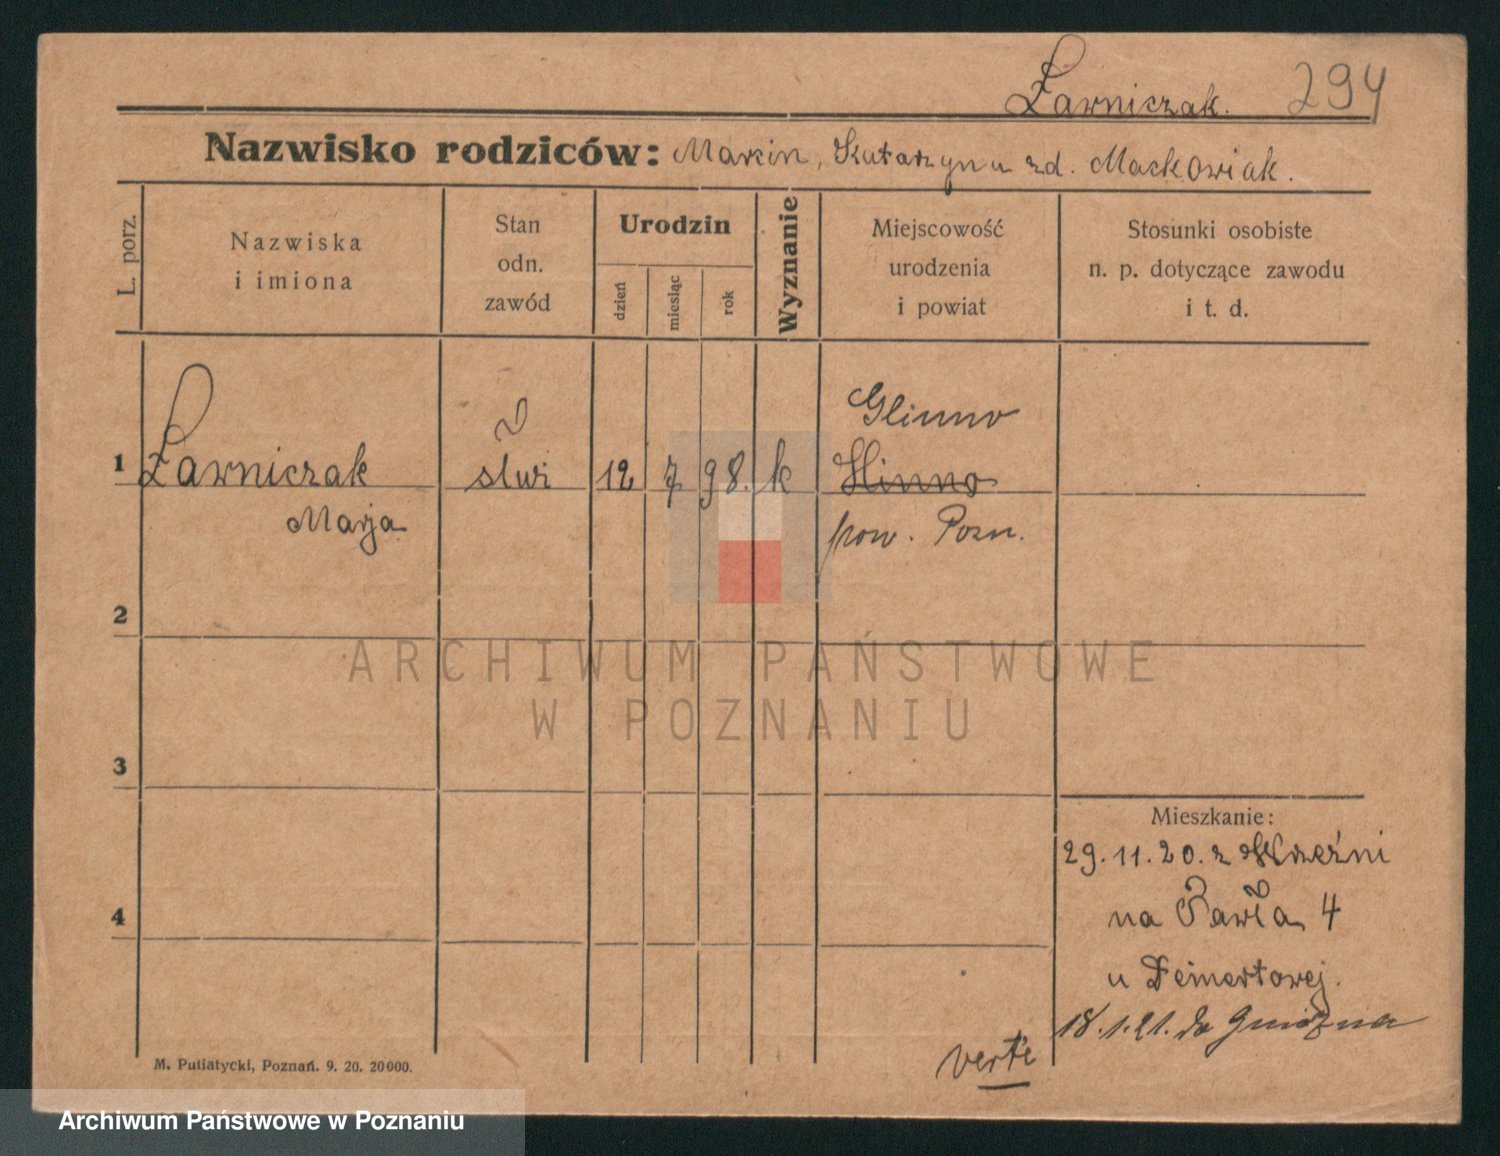 Żarniczak. 294
Nazwisko rodziców: Marcin, Katarzyna zd. Maćkowiak.
L. porz.
Nazwiska
i imiona
Stan
odn.
zawód
Urodzin
dzień
miesiąc
rok
Wyznanie
Miejscowość
urodzenia
i powiat
Stosunki osobiste
n. p. dotyczące zawodu
i t. d.
Glinno
1 Żarniczak służ 12 7 98. k
Marja pow. Pozn.
2
3
4
Mieszkanie:
29.11.20. z Wrześni
na Pawła 4
u Deimertowej.
18.1.21. do Gniezna
verte
M. Putiatycki, Poznań. 9. 20. 20000.
ARCHIWUM PAŃSTWOWE
W POZNANIU
Archiwum Państwowe w Poznaniu